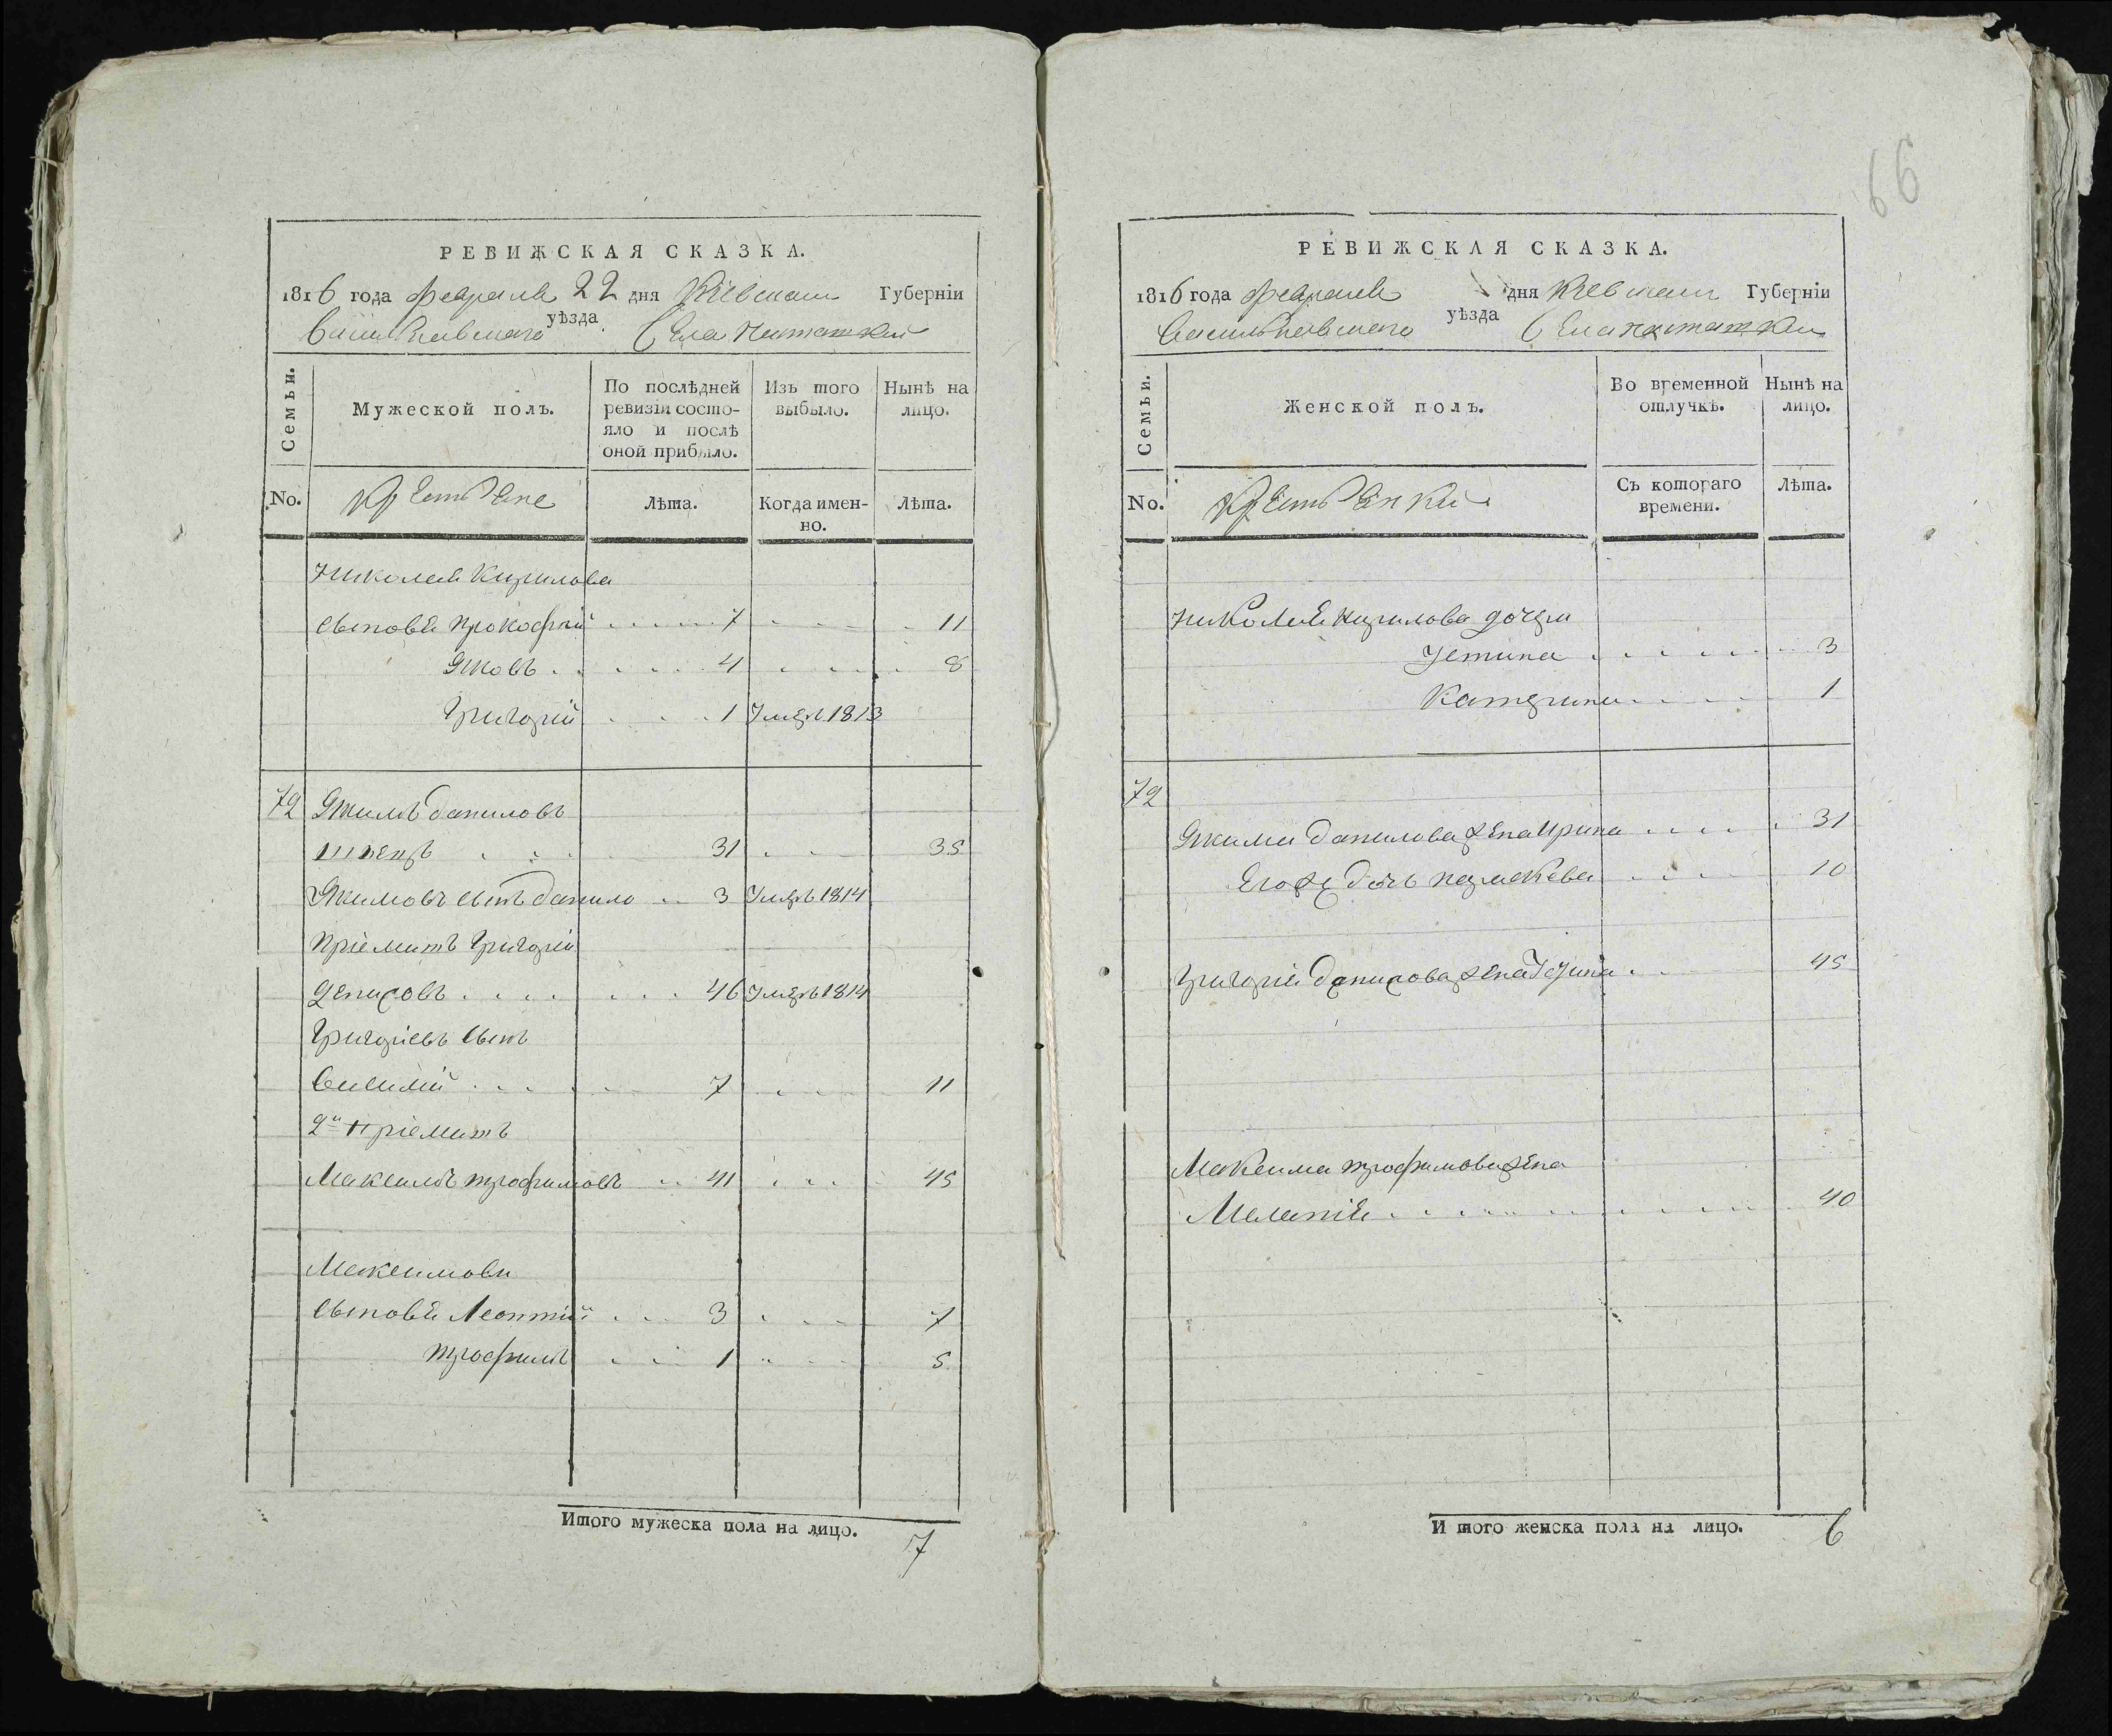 РЕВИЖСКАЯ СКАЗКА.
1816 года февраля 22 дня Кіевской Губерніи
Васильковскаго уѣзда Села
Семьи.
Мужеской полъ.
По послѣдней ревизіи состояло и послѣ оной прибыло.
Изъ того выбыло.
Нынѣ на лицо.
No.
Крестьяне
Лѣта.
Когда именно.
Лѣта.
Николая Кирилова
сыновья Прокофій 7 11
Яковъ 4 8
Григорій 1 Умеръ 1813
72 Якимъ Даниловъ
31 35
Якимовъ сынъ Данило 3 Умеръ 1814
Пріемышъ Григорій
Денисовъ 46 Умеръ 1814
Григоріевъ сынъ
Василій 7 11
2й Пріемышъ
Максимъ Трофимовъ 41 45
Максимовы
сыновья Леонтій 3 7
Трофимъ 1 5
Итого мужеска пола на лицо. 7
66
РЕВИЖСКАЯ СКАЗКА.
1816 года февраля дня Кіевской Губерніи
Васильковскаго уѣзда Села
Семьи.
Женской полъ.
Во временной отлучкѣ.
Нынѣ на лицо.
No.
Крестьянки
Съ котораго времени.
Лѣта.
Николая Кирилова дочери
Устина 3
Катерина 1
72
Якима Данилова жена Ирина 31
Его же дочь 10
Григорія Денисова жена 45
Максима Трофимова жена
Меланія 40
Итого женска пола на лицо. 6